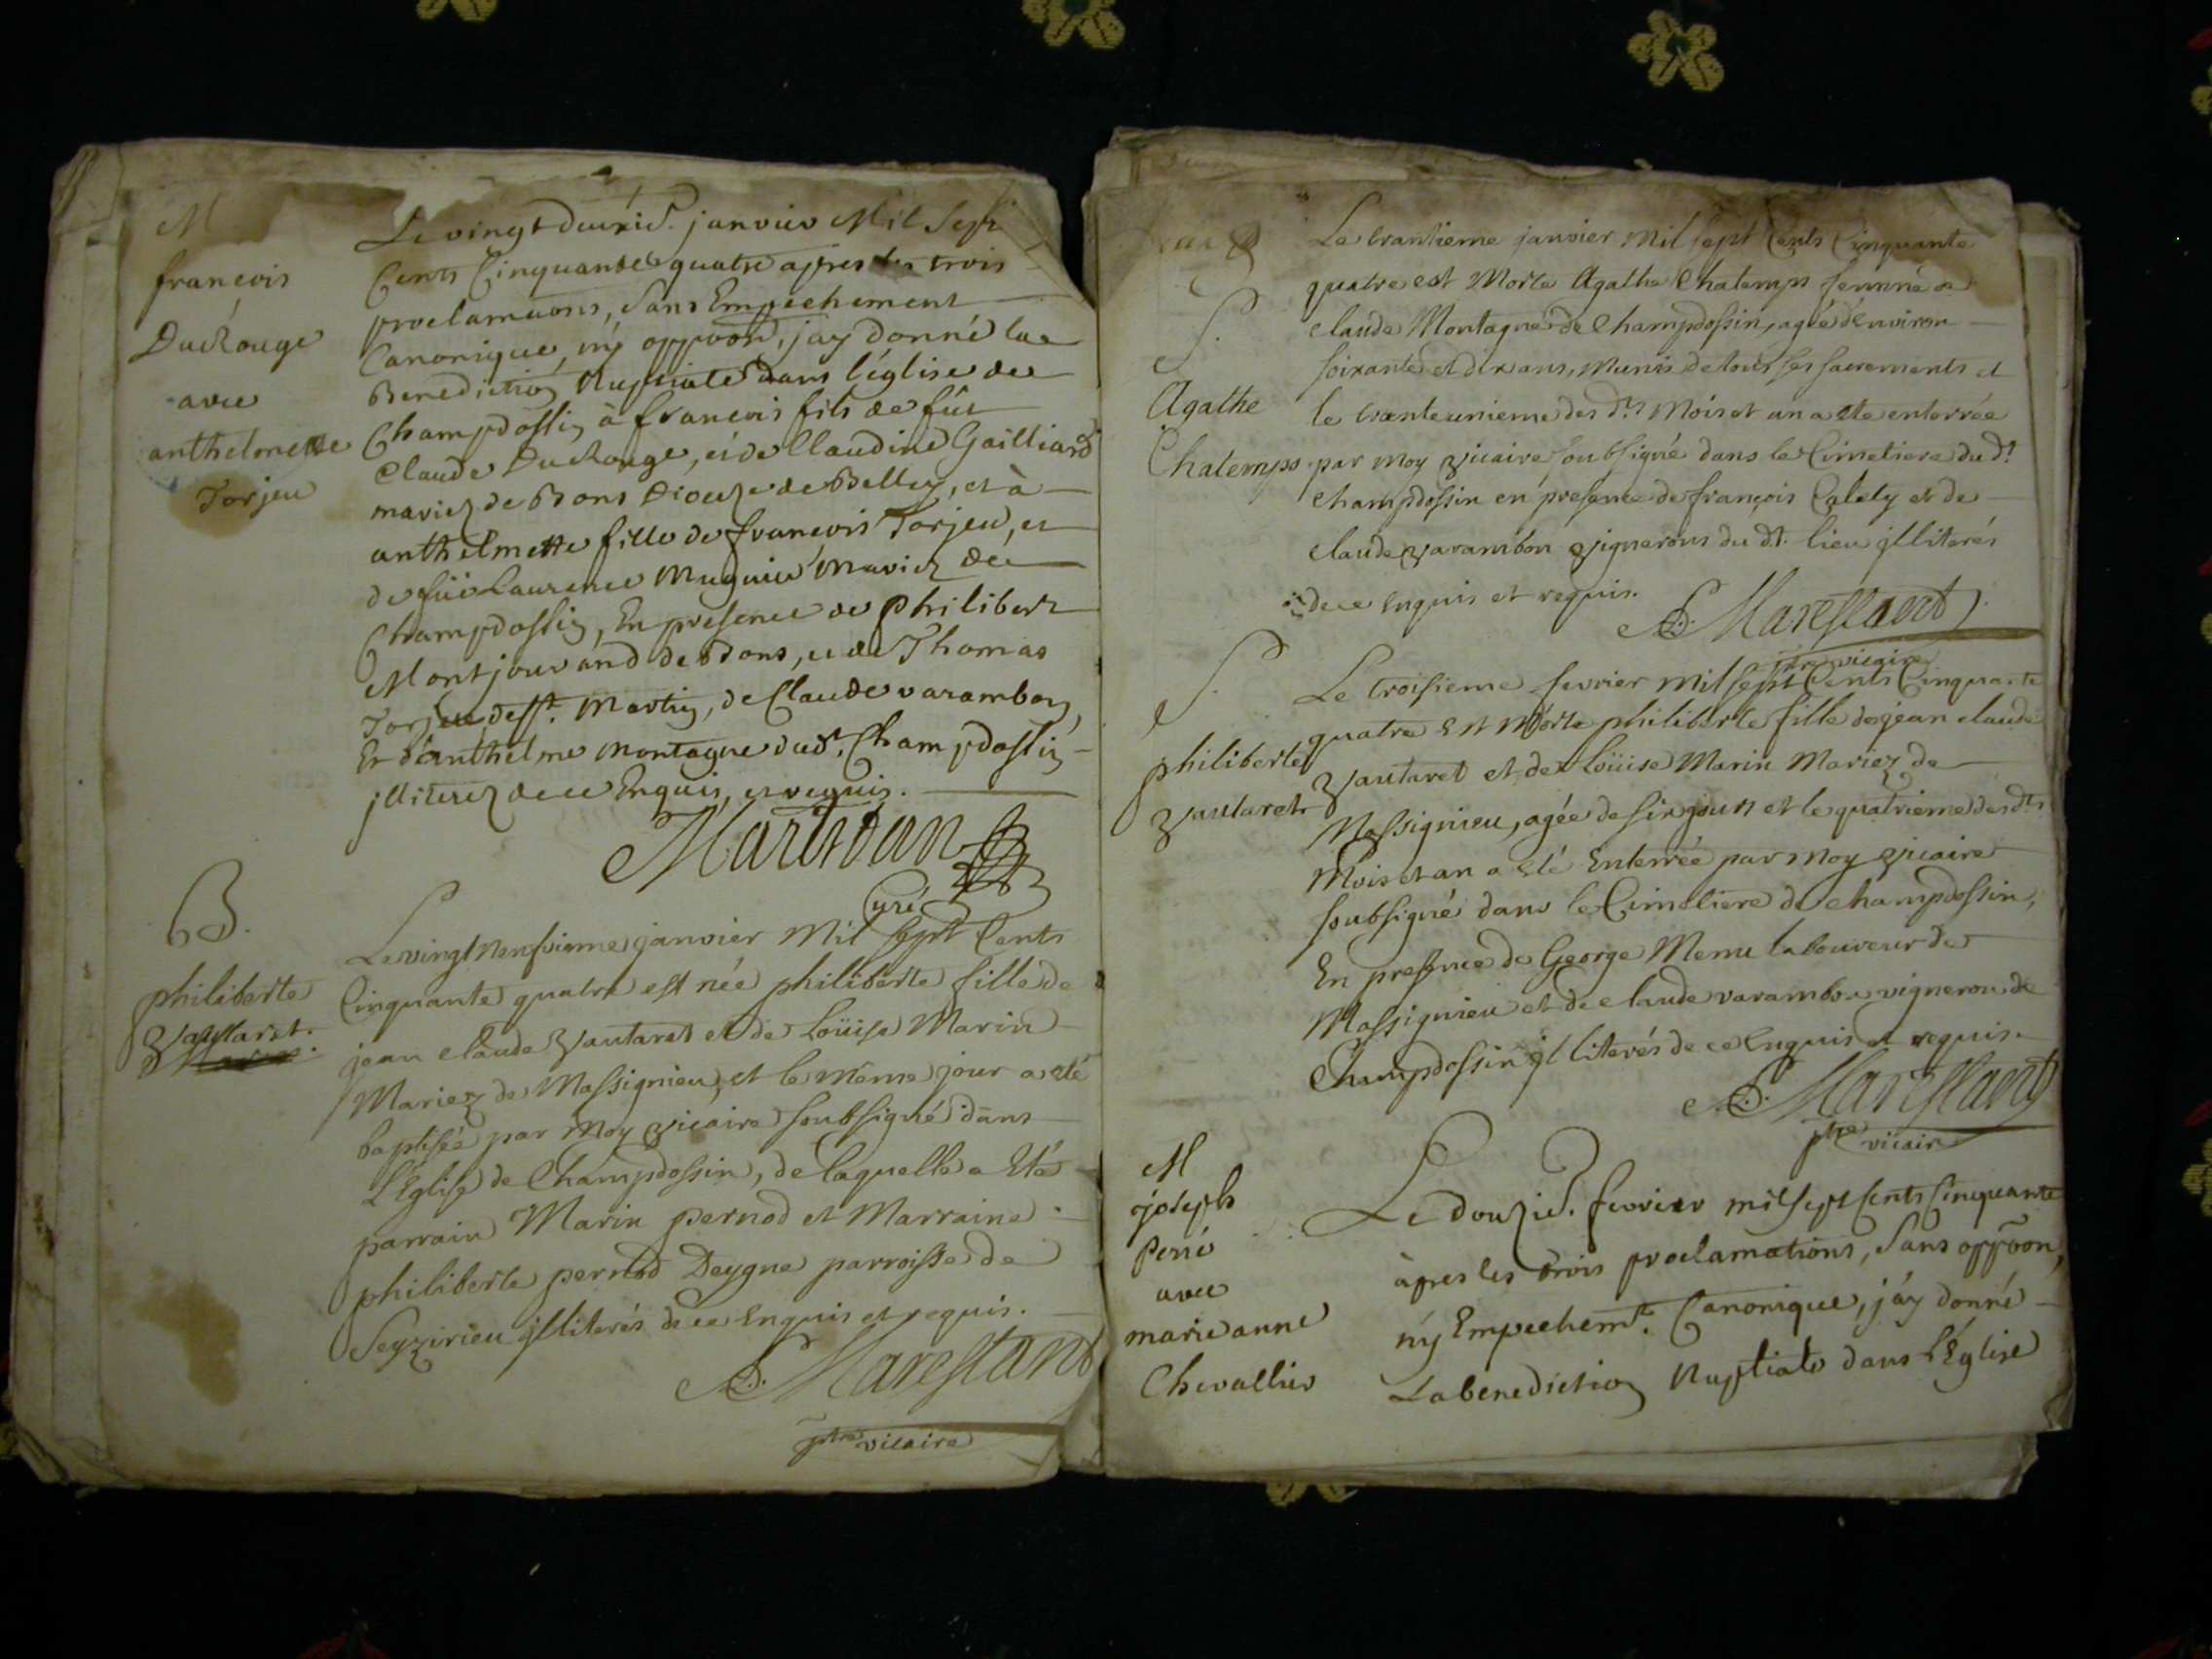 M
françois
DucRouge
avec
anthelmette
Torjeu
Le vingt deuxie. janvier Mil Sept
Cents Cinquante quatre apres les trois
proclamaons, Sans Empechement
Canonique, ny oppoon, jay donné la
Benediction Nuptiale dans l'église de
Champdossin à françois fils de fût
Claude DucRouge, et de Claudine Gailliard
mariez de Bons Dioceze de Belley, et à
anthelmette fille de françois Torjeu, et
de füe Laurence Muguier Mariez de
Champdossin, En presence de Philibert
Montjouvand de Bons, et de Thomas
Torjeu de St. Martin, de Claude varambon,
Et d'anthelme Montagne dudt. Champdossin
jlliterez de ce Enquis, et requis.
Martston
Curé
B.
philiberte
Vautaret.
Le vingt neufvieme janvier Mil Sept Cents
Cinquante quatre est née philiberte fille de
jean claude Vautaret et de Loüise Marin
Mariez de Massignieu, et le même jour a eté
baptisée par moy vicaire soubsigné dans
L'Eglise de Champdossin, de laquelle a Eté
parrain Marin pernod et Marraine
philiberte pernod Deygne parroisse de
Seyzirieu jlliterés de ce Enquis et requis.
Marestant
ptre vicaire
S.
Agathe
Chatemps
Le trantieme janvier Mil sept Cents Cinquante
quatre est Morte Agathe Chatemps femme de
claude Montagne de Champdossin, agée d'Environ
soixante et dix ans, Munis de tous ses sacrements et
le trente unieme des dts Mois et an a ete enterrée
par moy vicaire soubsigné dans le Cimetiere du dt
Champdossin en presence de françois Calety et de
claude varambon vignerons du dt. lieu jlliterés
de ce Enquis et requis.
Marestant
ptre vicaire
S.
philiberte
Vautaret
Le troisieme fevrier mil sept Cents Cinquante
quatre Est Morte philiberte fille de jean claude
Vautaret et de Loüise Marin Mariez de
Massignieu, agée de six jours et le quatrieme des dts
Mois et an a Eté Enterrée par moy vicaire
soubsigné dans le Cimetiere de Champdossin,
En presence de George Menu laboureur de
Massignieu et de claude varambon vigneron de
Champdossin jlliterés de ce Enquis et requis.
Marestant
ptre vicaire
M
joseph
Perré
avec
marie anne
Chevallier
Le douzie. fevrier mil sept Cents Cinquante
àpres les trois proclamations, Sans oppoon,
ny Empechemt. Canonique, j'ay donné
La benediction Nuptiale dans l'Église